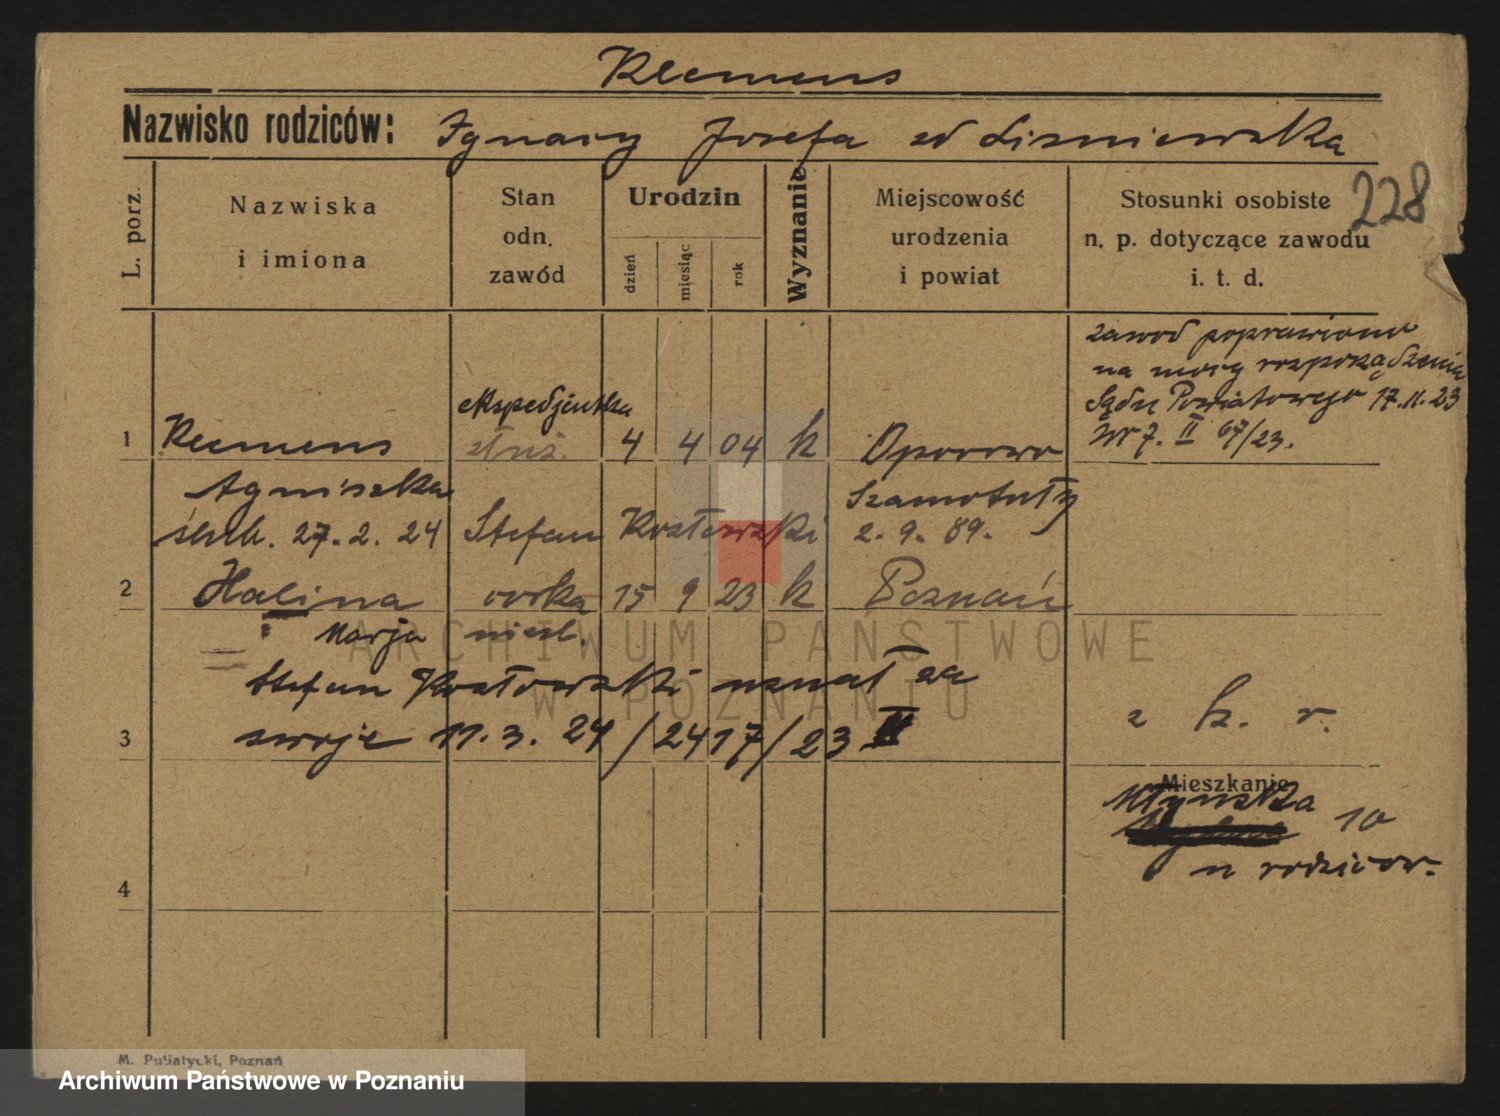 Klemens
Nazwisko rodziców: Ignacy Józefa zd Liśniewska
228
L. porz.
Nazwiska
i imiona
Stan
odn.
zawód
Urodzin
dzień
miesiąc
rok
Wyznanie
Miejscowość
urodzenia
i powiat
Stosunki osobiste
n. p. dotyczące zawodu
i. t. d.
zawód poprawiono
na mocy rozporządzenia
Sądu Powiatowego 17.11.23
Nr 7. II 67/23.
ekspedjentka
1 Klemens służ. 4 4 04 k Oporowo
Agniszka Szamotuły
ślub. 27.2.24 Stefan Kozłowski 2.9.89.
2 Halina córka 15 9 23 k Poznań
Marja nieśl.
Stefan Kozłowski uznał za
swoje 11.3.24/2417/23 II
3
z k. r.
Mieszkanie
Młyńska
10
u rodziców.
4
M. Putiatycki, Poznań
ARCHIWUM PAŃSTWOWE
W POZNANIU
Archiwum Państwowe w Poznaniu